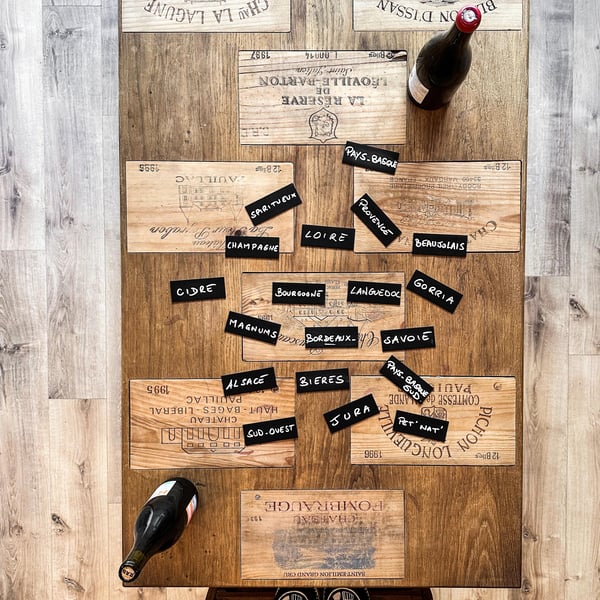 CHAU LA LAGUNE
BLION D'ISSAN
1997
12 Btles
LA RESERVE
DE
LÉOVILLE-BARTON
Saint-Julien
PAYS-BASQUE
1996
12 Btles
PAUILLAC
SPIRITUEUX
PROVENCE
CHAMPAGNE
LOIRE
BEAUJOLAIS
CIDRE
BOURGOGNE
LANGUEDOC
GORRIA
MAGNUMS
BORDEAUX
SAVOIE
ALSACE
BIERES
PAYS-BASQUE
SUD
SUD-OUEST
JURA
PET'NAT'
1995
12 Btles
CHATEAU
HAUT-BAGES-LIBERAL
PAUILLAC
PICHON LONGUEVILLE
COMTESSE DE LALANDE
1996
12 Btles
CHATEAU
FOMBRAUGE
SAINT-EMILION GRAND CRU